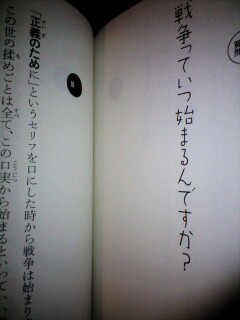 戦争っていつ始まるんですか？
「正義のために」というセリフを口にした時から戦争は始まり
この世の揉めごとは全て、この口実から始まるといって